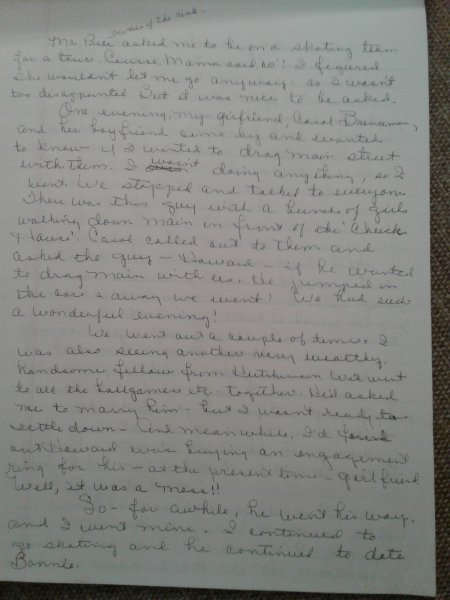 owner of the rink -
Mr. Rice asked me to be on a skating team
for a tour. Course Mama said, no! I figured
she wouldn't let me go anyway - so I wasn't
too disappointed. But it was nice to be asked.
One evening, my girlfriend, Carol
and her boyfriend came by and wanted
to know if I wanted to drag main street
with them. I wasn't doing anything, so I
went. We stopped and talked to everyone
There was this guy with a bunch of girls
walking down main in front of the "Chuck
Carol called out to them and
asked the guy - Howard - if he wanted
to drag main with us. He jumped in
the car & away we went! We had such
a wonderful evening!
We went out a couple of times. I
was also seeing another very wealthy,
handsome fellow from Hutchinson We'd went
to all the ballgames etc. together. He'd asked
me to marry him - but I wasn't ready to
settle down - And meanwhile, I'd found
out Howard was buying an engagement
ring for his - at the present time - girlfriend.
Well, it was a mess!!
So - for awhile, he went his way,
and I went mine. I continued to
go skating and he continued to date
Bonnie.